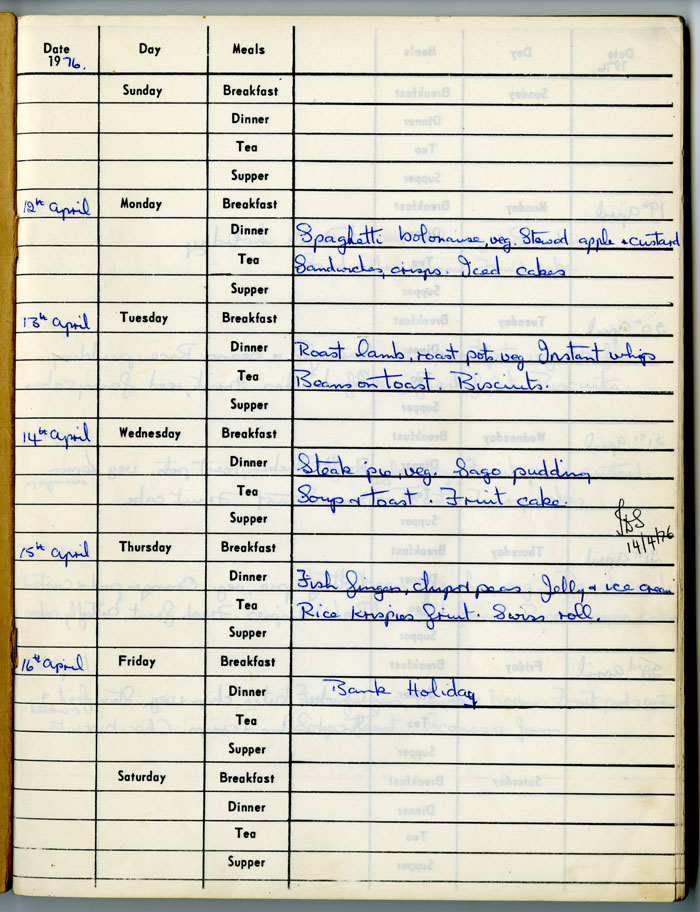 Date Day Meals
1976.
Sunday Breakfast
Dinner
Tea
Supper
12th April Monday Breakfast
Dinner Spaghetti bolonaise, veg. Stewed apple & custard
Tea Sandwiches, crisps. Iced cakes
Supper
13th April Tuesday Breakfast
Dinner Roast lamb, roast pots, veg Instant whip
Tea Beans on toast. Biscuits.
Supper
14th April Wednesday Breakfast
Dinner Steak pie, veg. Sago pudding
Tea Soup & toast. Fruit cake.
Supper
14/4/76
15th April Thursday Breakfast
Dinner Fish finger, chips & peas Jelly & ice cream
Tea Rice krispies fruit. Swiss roll.
Supper
16th April Friday Breakfast
Dinner Bank Holiday
Tea
Supper
Saturday Breakfast
Dinner
Tea
Supper